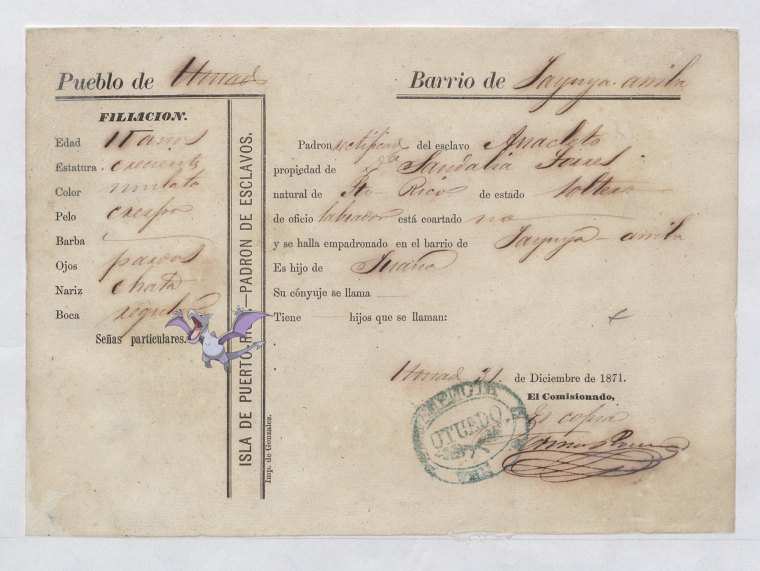 Pueblo de Utuado
Barrio de Jayuya arriba
FILIACION.
Edad 11 años
Estatura creciente
Color mulato
Pelo crespo
Barba
Ojos pardos
Nariz chata
Boca regular
Señas particulares.
ISLA DE PUERTO-RI —PADRON DE ESCLAVOS.
Imp. de Gonzalez.
Padron del esclavo Anacleto
propiedad de Da Sandalia Torres
natural de Pto Rico de estado soltero
de oficio labrador está coartado no
y se halla empadronado en el barrio de Jayuya arriba
Es hijo de Juana
Su cónyuje se llama
Tiene hijos que se llaman:
Utuado 31 de Diciembre de 1871.
El Comisionado,
Es copia
OTUADO